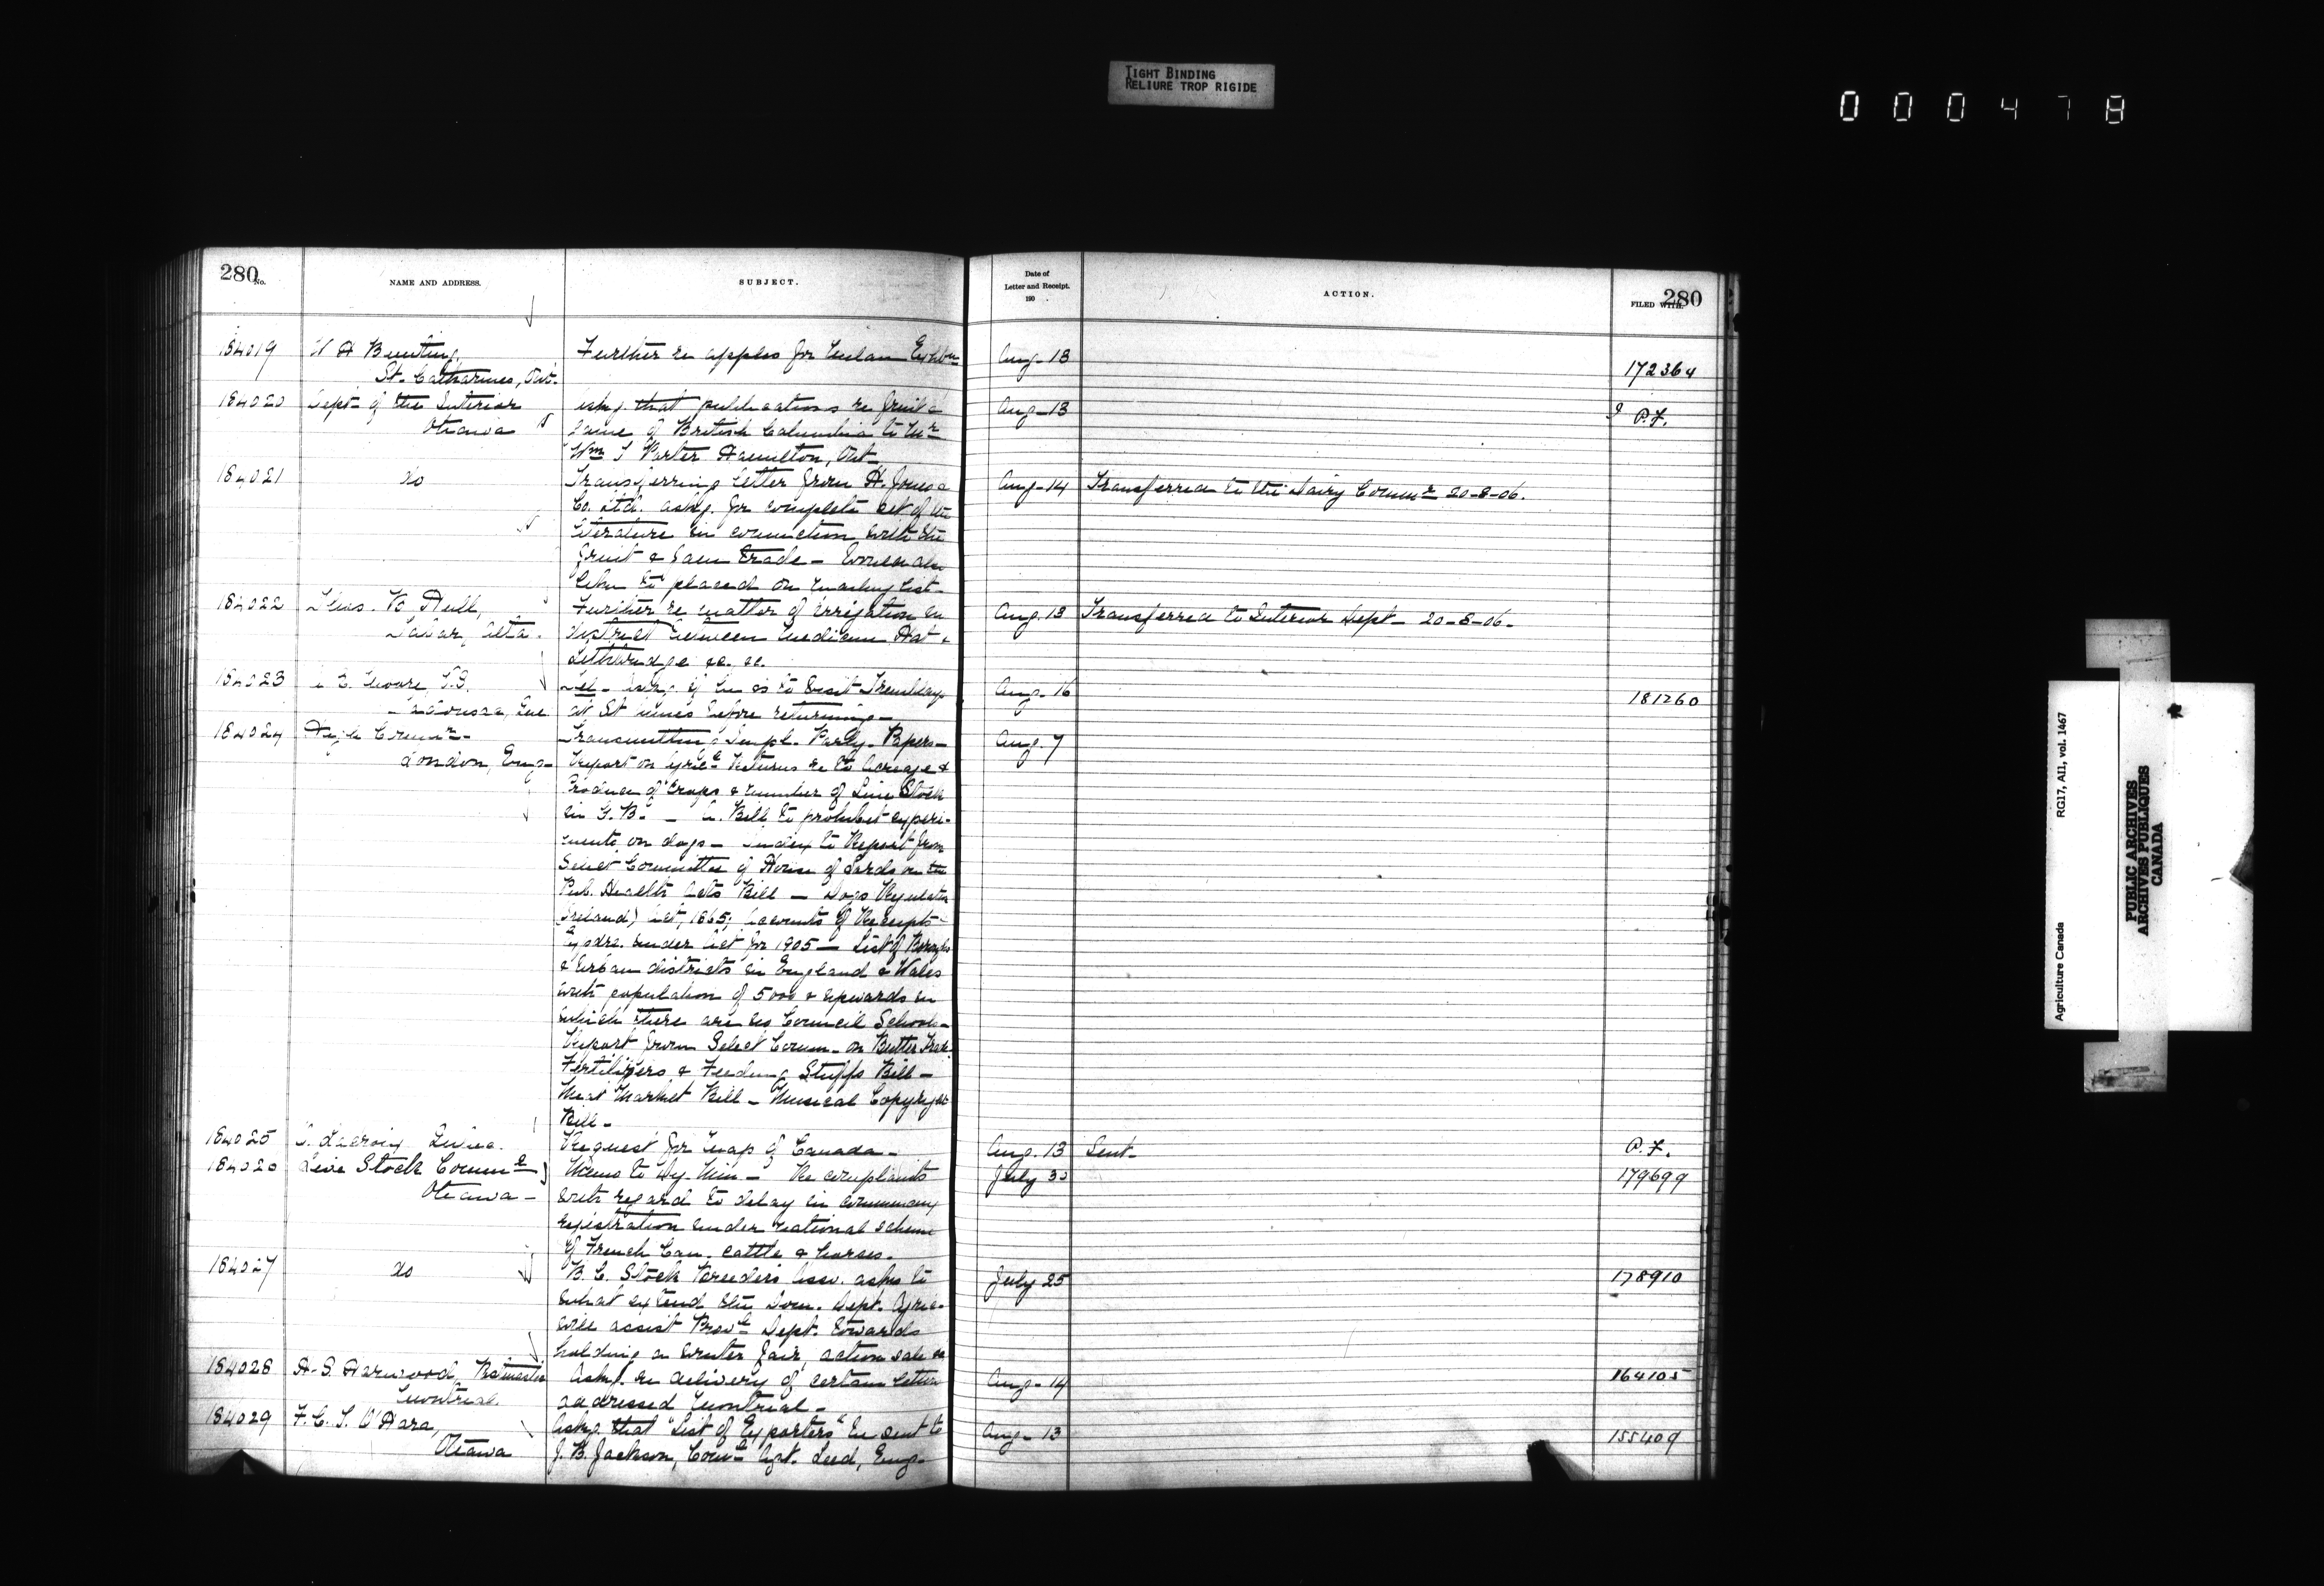 TIGHT BINDING
RELIURE TROP RIGIDE
000478
280
No.
NAME AND ADDRESS.
SUBJECT.
Date of
Letter and Receipt.
190
ACTION.
FILED WITH.
280
184019 W H Bunting, Further re apples for Milan Aug. 13
St. Catharines, Ont. 172364
184020 Dept. of the Interior askg. that publications re fruit & Aug. 13 P.F.
Ottawa game of British Columbia to Mr
Wm Porter Hamilton, Ont.
184021 do Transferring letter from H. Jones & Aug. 14 Transferred to the Dairy Commr 20-8-06.
Co. Ltd. askg. for complete set of the
literature in connection with the
fruit & Jam trade -
placed on mailing list -
184022 Hull, Further re matter of irrigation in Aug. 13 Transferred to Interior Dept - 20-8-06.
Taber, Alta. district between Medicine Hat &
Lethbridge &c. &c.
184023 Moore, Tel - askg. if he is to visit Tremblay Aug. 16 181260
Que at St before returning -
184024 High Commr - Transmitting Papers - Aug. 7
London, Eng - Report on Returns as to Acreage &
Produce of Crops & number of Live Stock
in G.B. - A. Bill to prohibit experi-
ments on dogs - Index to Report from
Select Committee of House of Lords on the
Pub. Health Acts Bill - Dogs Regulation
(Ireland) Act, 1865; Accounts of Receipts
under Act for 1905 - List of Boroughs
& urban districts in England & Wales
with population of 5000 & upwards in
which there are no Council Schools -
Report from Select Comm - on Butter Trade
Fertilizers & Feeding Stuffs Bill -
Meat Market Bill - Musical Copyright
Bill -
184025 Lacroix Request for map of Canada - Aug. 13 Sent - P.F.
184026 Live Stock Commr Memo to Dy. Min - Re complaints July 30 179699
Ottawa - with regard to delay in
registration under national scheme
of French Can. cattle & horses.
184027 do B. C. Stock Breeders Assn. asks to July 25 178910
what extend the Dom. Dept. Agric.
will assist Provl Dept. towards
holding a winter fair, action sale &c
184028 H. S. Harwood, Postmaster Askg. re delivery of certain letter Aug. 14 164105
Montreal. addressed Montreal -
184029 F. C. T. O'Hara, Askg. that "List of Exporters" be sent to Aug. 13 155409
Ottawa J. B. Jackson, Agt. Leed, Eng -
Agriculture Canada RG17, AII, vol. 1467
PUBLIC ARCHIVES
ARCHIVES PUBLIQUES
CANADA